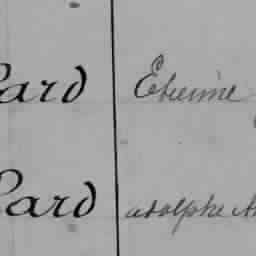 ard Etienne
ard adolphe